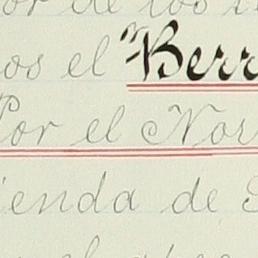 or de los
os el "Berr
Por el Nor
ienda de